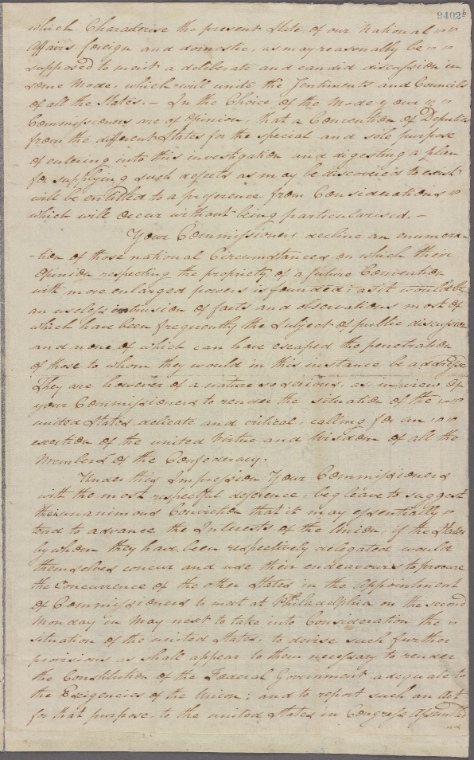 9402
which Charadrise the present State of our National
Affairs foreign and domestic, as may reasonably be
supposed to merit a deliberate and candid discussion in
some Mode, which will unite the Sentiments and Councils
of all the States. — In the Choice of the Mode your
Commissioners are of opinion, that a Convention of Deputies
from the different States for the special and sole purpose
of entering into this investigation and digesting a plan
for supplying such defects as may be discovered to exist
will be entitled to a preference from Considerations
which will occur without being particularised. —
Your Commissioners decline an enumera-
-tion of those national Circumstances on which their
opinion respecting the propriety of a future Convention
with more enlarged powers is founded; as it would be
an useless intrusion of facts and observations most of
which have been frequently the subject of public discussion
and none of which can have escaped the penetration
of those to whom they would in this instance be addressed
They are however of a nature so serious, as in view of
your Commissioners to render the situation of the
united States delicate and critical, calling for an
exertion of the united Virtue and Wisdom of all the
Members of the Confederacy.
Under this Impression Your Commissioners
with the most respectful deference, beg leave to suggest
their unanimous Conviction that it may essentially
tend to advance the Interests of the Union, if the States
by whom they have been respectively delegated would
themselves concur and use their endeavours to procure
the Concurrence of the other States in the Appointment
of Commissioners to meet at Philadelphia on the second
Monday in May next to take into Consideration the
situation of the united States, to devise such further
provisions as shall appear to them necessary to render
the Constitution of the Foederal Government adequate to
the Exigencies of the Union; and to report such an Act
for that purpose, to the united States in Congress Assembled